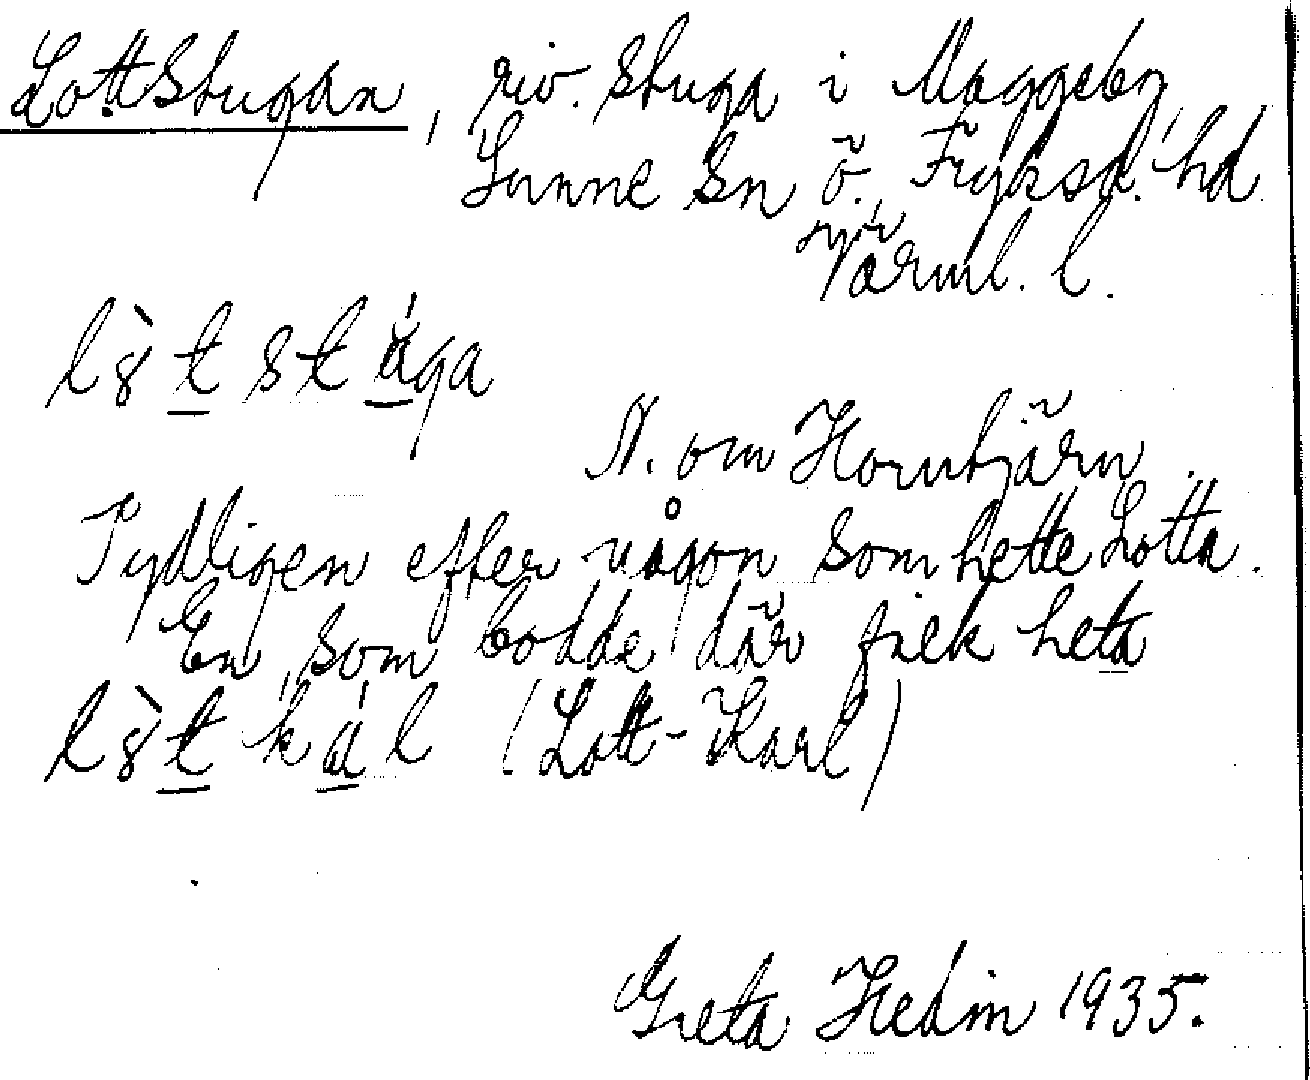 Lottstugan, riv. stuga i Maggeby,
Sunne sn Ö. Fryksd. hd
Värml. l.
N. om Horntjärn.
Tydligen efter någon som hette Lotta.
En som bodde där fick heta
(Lott-Karl)
Greta Hedin 1935.